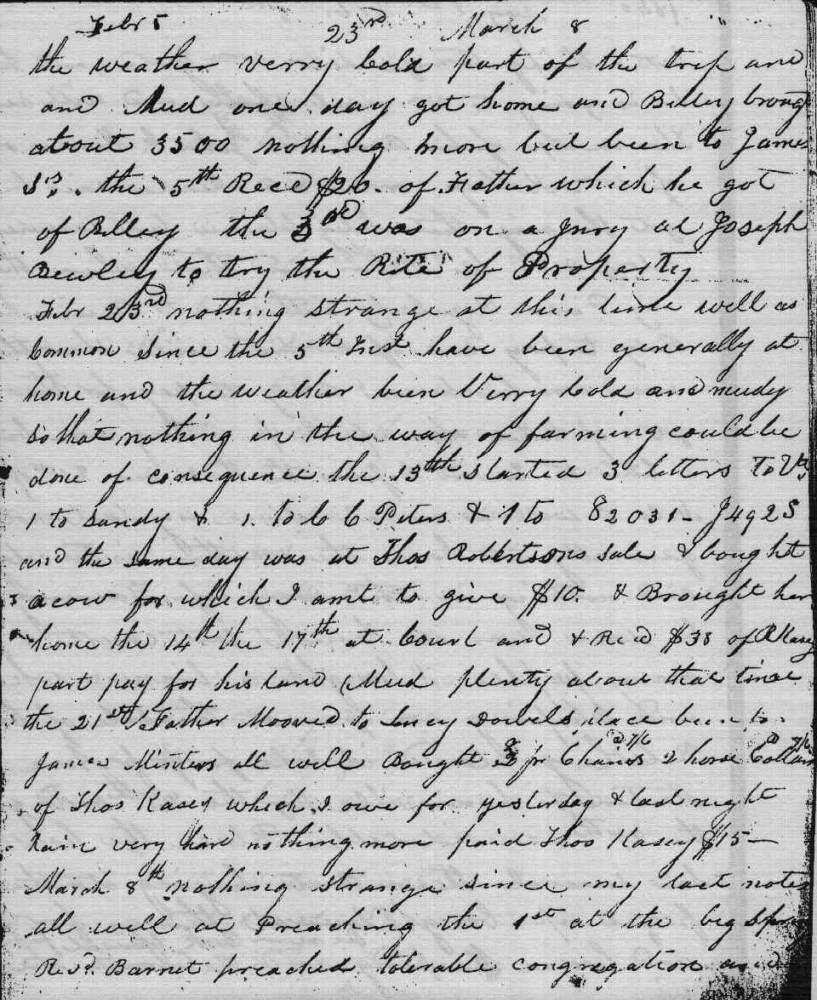 Febr 5 23rd March 8
the weather verry Cold part of the trip and
and Mud one day got home and Billey broug
about 3500 nothing more but been to James
Ss. the 5th Recd $20. of Father which he got
of Billey the 3rd was on a Jury at Joseph
Bewley to try the Rite of Proparty
Febr 23rd nothing strange at this time well as
Common Since the 5th Inst have been generally at
home and the weather been Verry Cold and mudy
so that nothing in the way of farming could be
done of consequence the 13th started 3 letters to Va
1 to Sandy & 1. to C C Peters & 1 to 82031- J492S
and the same day was at Thos Robertsons sale & bought
a cow for which I amt to give $10. & Brought her
home the 14th the 17th at Court and & Recd $38 of A Kasey
part pay for his land Mud plenty about that time
the 21st Father Mooved to Lucy Dowels place been to
James Minters all well Bought 3 pr Chains 2 horse Collars
of Thos Kasey which I owe for yesterday & last night
Rain very hard nothing more paid Thos Kasey $15-
March 8th nothing strange since my last note
all well at Preaching the 1st at the big Spr
Revd. Barnet preached tolerable congregation and